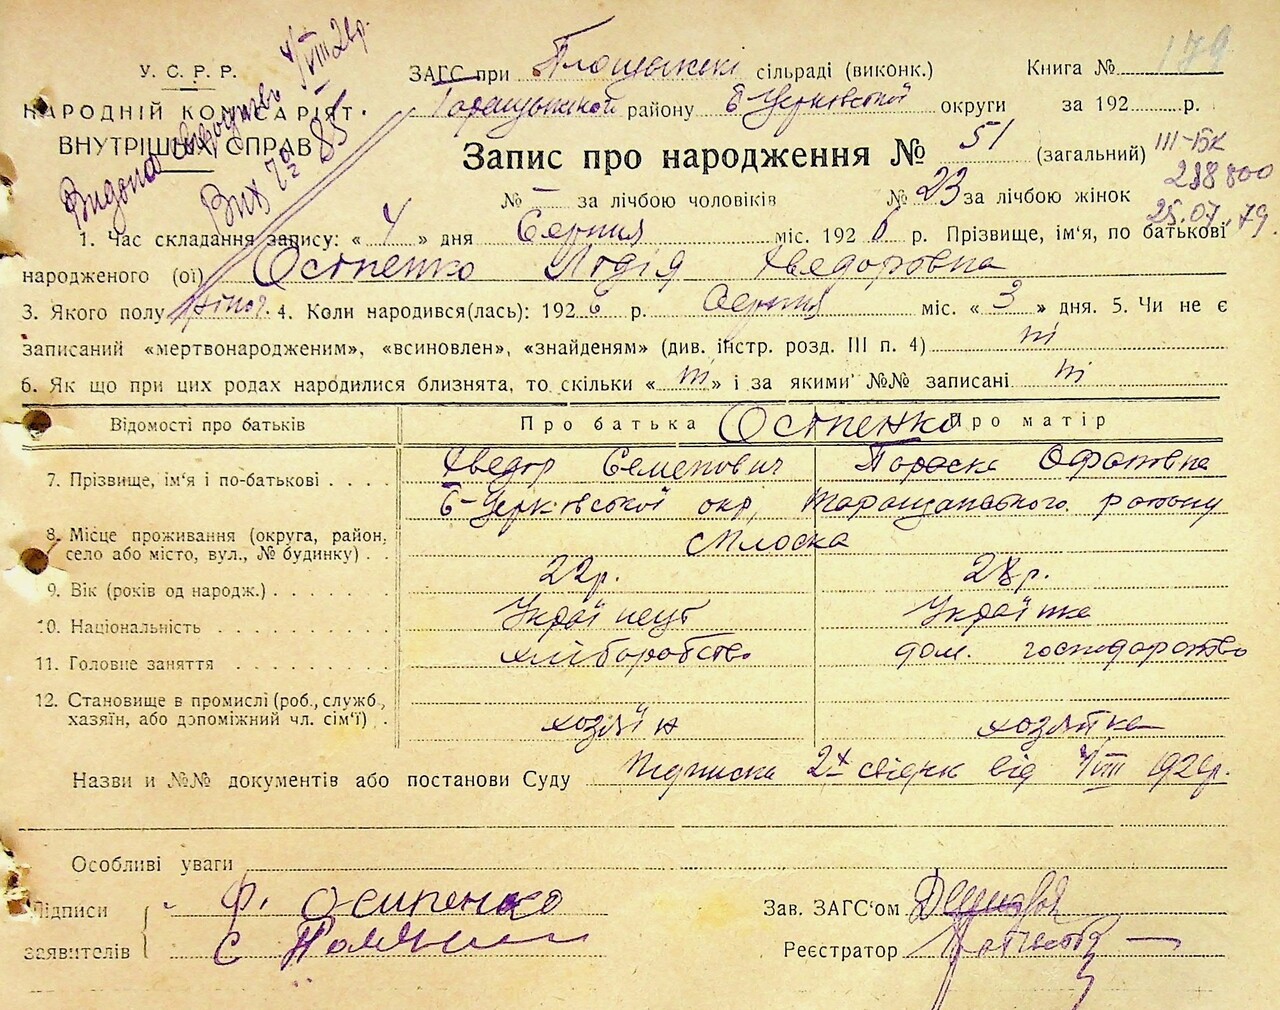 У. С. Р. Р.
НАРОДНІЙ КОМІСАРІЯТ
ВНУТРІШНІХ СПРАВ
Видано 4/VIII 26р.
Вих 85
179
ЗАГС при Площанскі сільраді (виконк.) Книга №
Таращанской району Б-Церковської округи за 192 р.
Запис про народження № 51 (загальний)
III-БК
218800
25.07.79.
№ — за лічбою чоловіків № 23 за лічбою жінок
1. Час складання запису: « 4 » дня Серпня міс. 1926 р. Прізвище, ім'я, по батькові
народженого (ої) Осіпенко Лідія Хведоровна
3. Якого полу жіноч. 4. Коли народився(лась): 1926 р. Серпня міс. « 3 » дня. 5. Чи не є
записаний «мертвонародженим», «всиновлен», «знайденям» (див. інстр. розд. III п. 4) ні
6. Як що при цих родах народилися близнята, то скільки « ні » і за якими №№ записані ні
Відомості про батьків Про батька Осіпенко Про матір
7. Прізвище, ім'я і по-батькові Хведор Семенович Параска
Б-Церковської окр, Таращанського району
8. Місце проживання (округа, район,
село або місто, вул., № будинку) с Плоска
9. Вік (років од народж.) 22р. 28р.
10. Національність Українець Українка
11. Головне заняття хліборобство дом. господарство
12. Становище в промислі (роб., служб.,
хазяїн, або допоміжний чл. сім'ї) хозяїн хозяйка
Назви и №№ документів або постанови Суду Підписка 2х свідк від 4/VIII 1926р.
Особливі уваги
Підписи Ф. Осипенко
заявителів С
Зав. ЗАГС'ом
Реєстратор